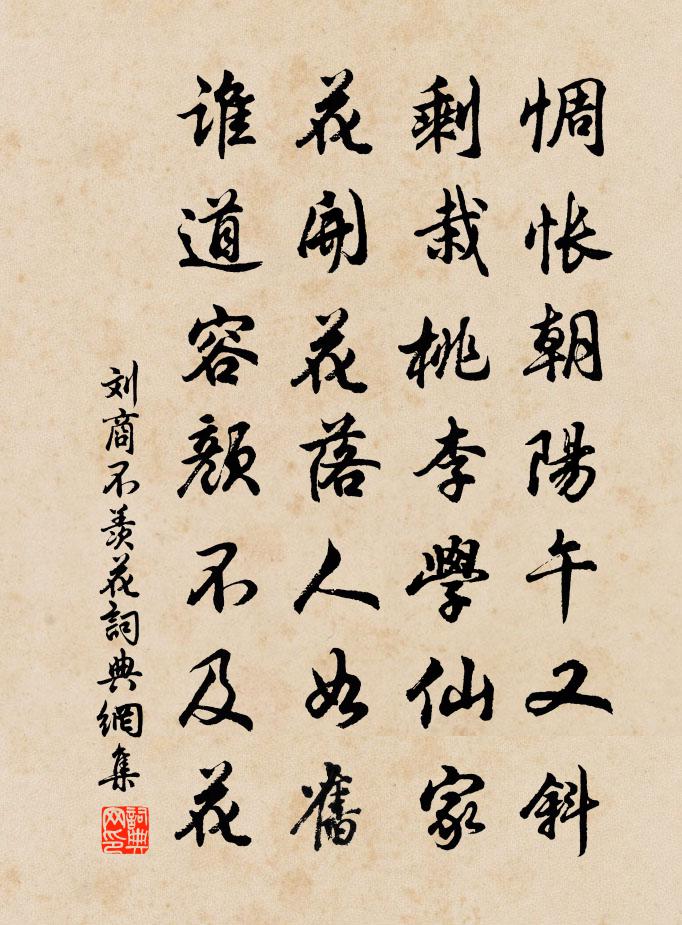 惆悵朝陽午又斜
剩栽桃李學仙家
花開花落人如舊
誰道容顏不及花
刘商不羨花詞典網集
詞典网印